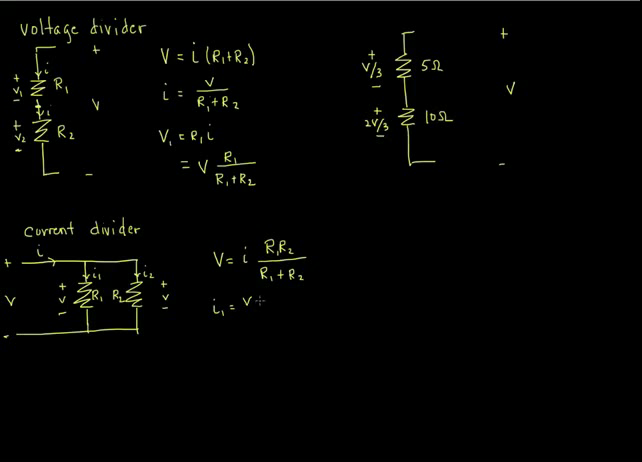 voltage divider
+
i
+
V₁
-
R₁
V
i
+
V₂
-
R₂
-
V = i (R₁+R₂)
i = V / R₁+R₂
V₁ = R₁ i
= V R₁ / R₁+R₂
+
V/3
-
5Ω
+
2V/3
-
10Ω
+
V
-
current divider
i
+
V
-
i₁
+
V
-
R₁
i₂
R₂
+
V
-
V = i R₁R₂ / R₁+R₂
i₁ = V